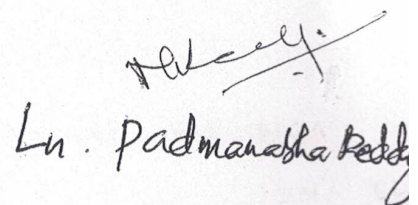 Ln. Padmanabha Reddy